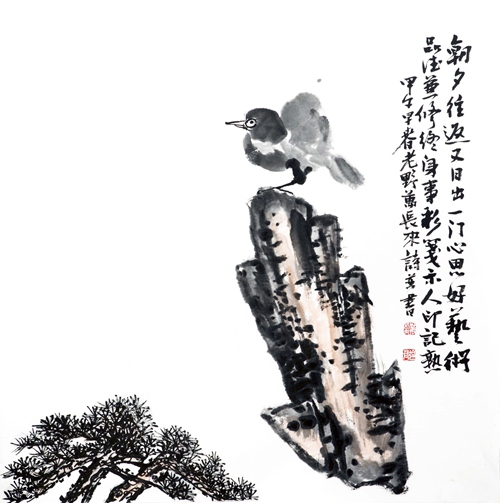 朝夕往返又日出一门心思好藝術
品德兼修終身事彩箋示人印記熟
甲午早春老野萬長來詩并書